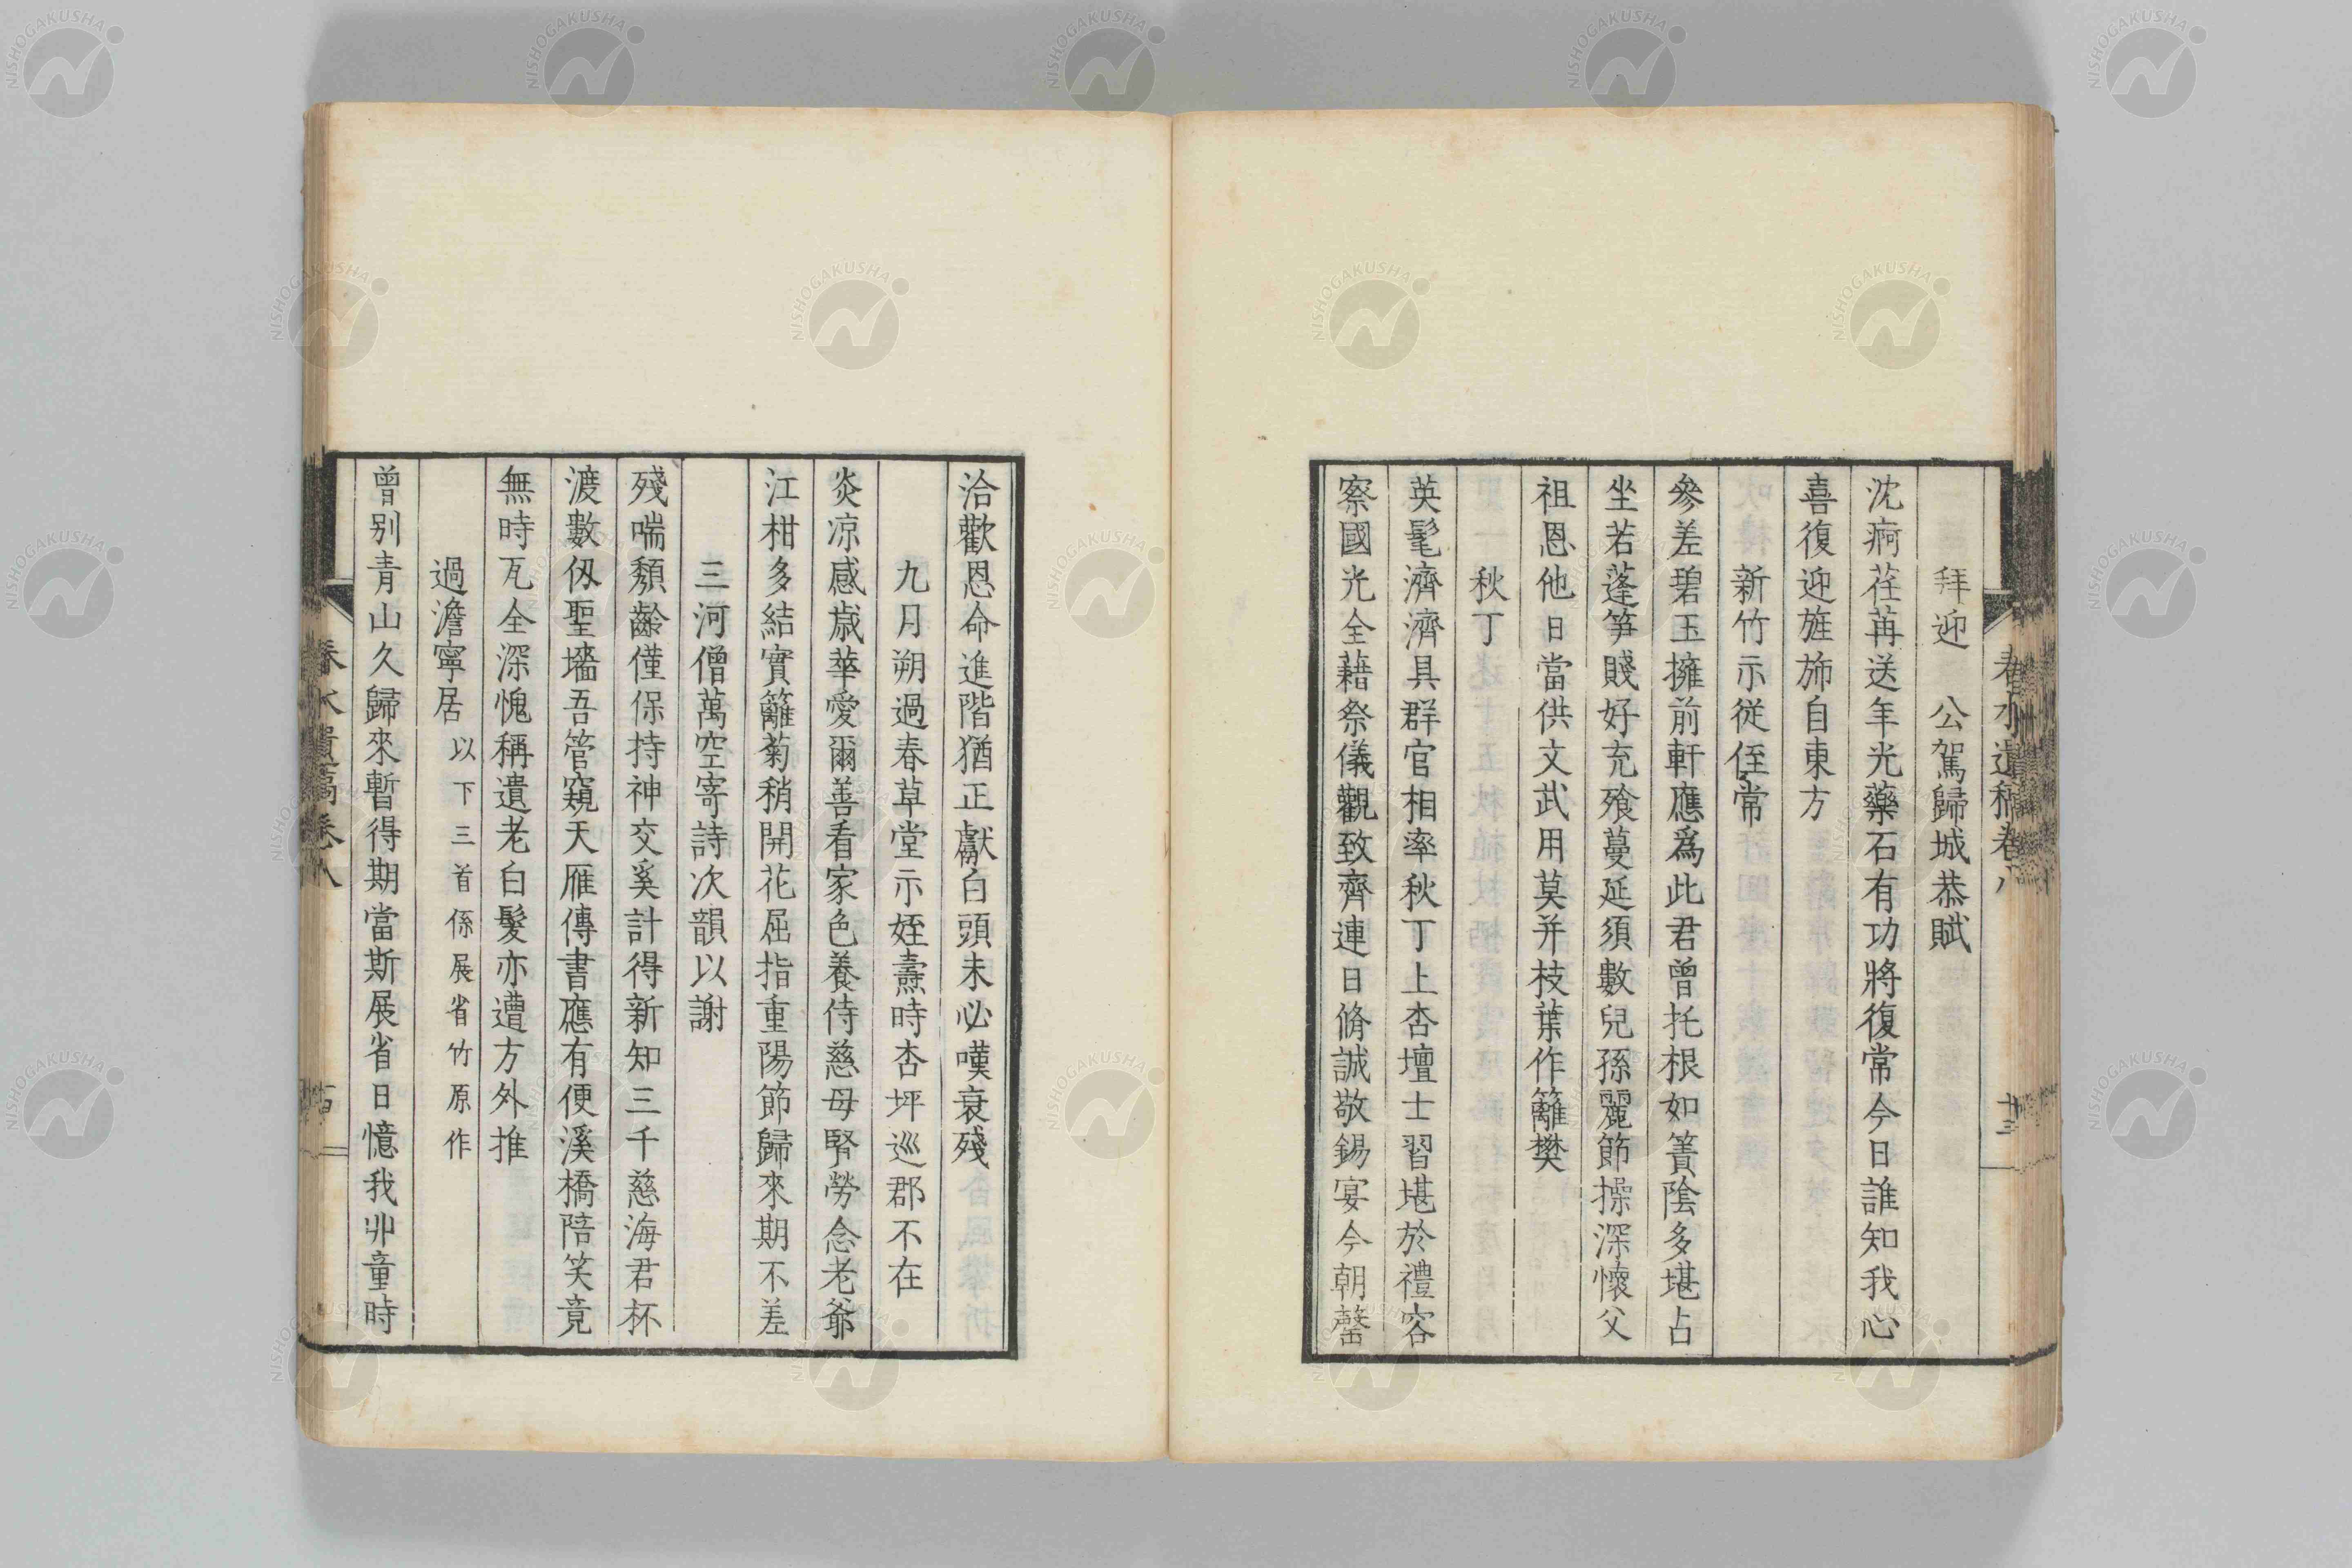 拜迎　公駕歸城恭賦
沈痾荏苒送年光藥石有功將復常今日誰知我心
喜復迎旌斾自東方
新竹示從侄常
參差碧玉擁前軒應爲此君曾托根如簀陰多堪占
坐若蓬笋賤好充飱蔓延須數兒孫麗節操深懷父
祖恩他日當供文武用莫并枝葉作籬樊
秋丁
英髦濟濟具群官相率秋丁上杏壇士習堪於禮容
察國光全藉祭儀觀致齊連日脩誠敬錫宴今朝罄
洽歡恩命進階猶正獻白頭未必嘆衰殘
九月朔過春草堂示姪燾時杏坪巡郡不在
炎凉感歲華愛爾善看家色養侍慈母賢勞念老爺
江柑多結實籬菊稍開花屈指重陽節歸來期不差
三河僧萬空寄詩次韻以謝
殘喘頽齡僅保持神交奚計得新知三千慈海君杯
渡數仭聖墻吾管窺天雁傳書應有便溪橋陪笑竟
無時瓦全深愧稱遺老白髮亦遭方外推
過澹寧居以下三首係展省竹原作
曾别青山久歸來暫得期當斯展省日憶我丱童時
春水遺稿卷八